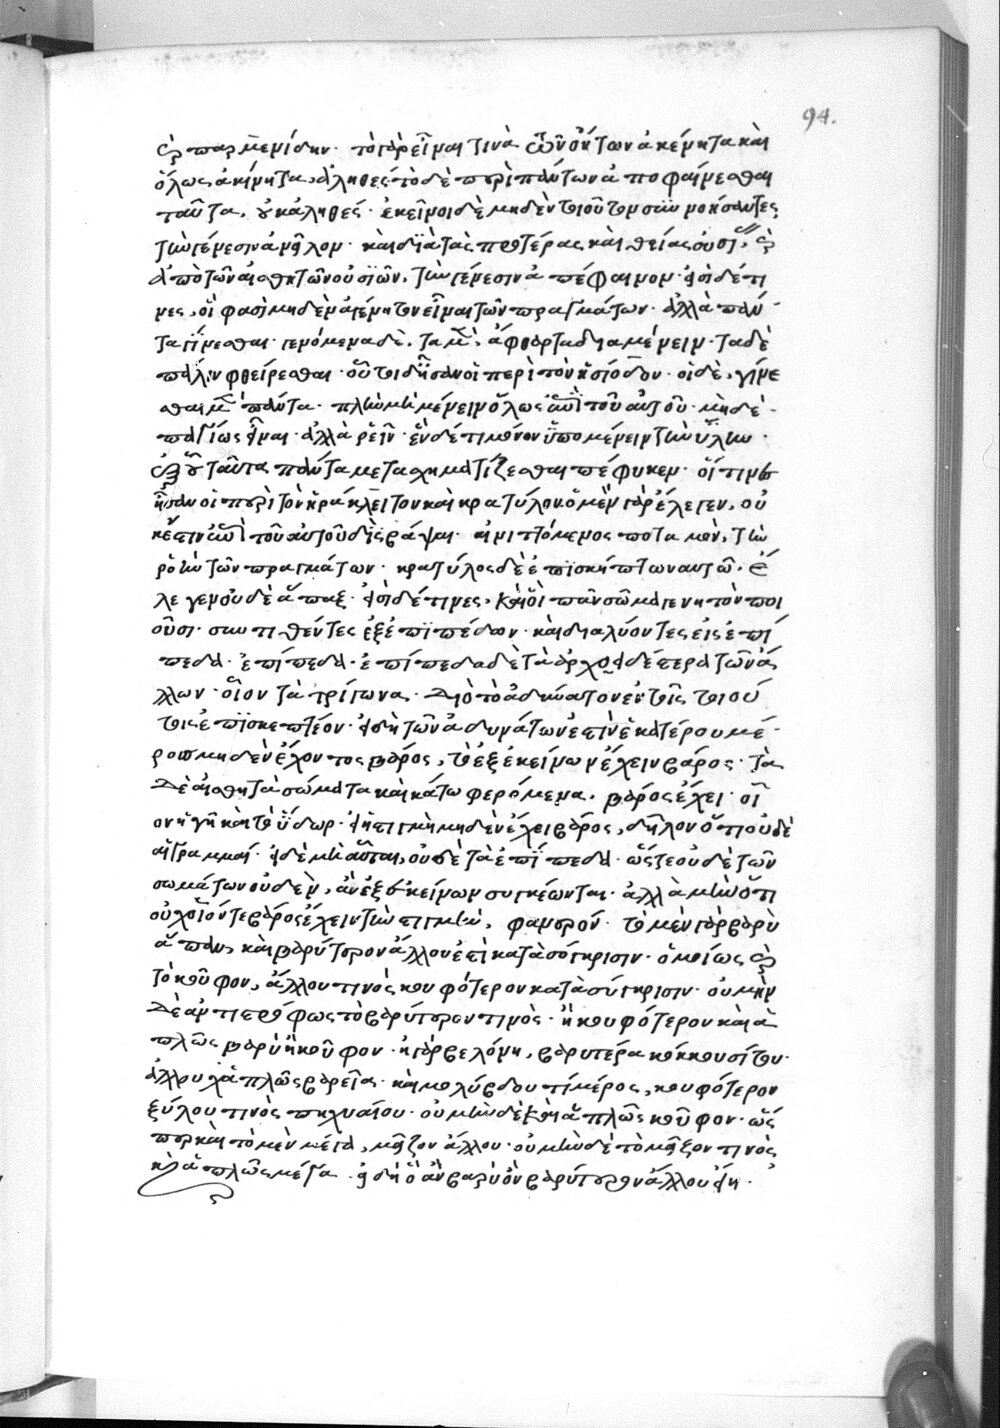 94.
καὶ παρμενίδην· τὸ γὰρ εἶναι τινὰ τῶν ὄντων ἀκίνητα καὶ
ὅλως ἀκίνητα, ἀληθές· τὸ δὲ περὶ πάντων ἀποφαίνεσθαι
ταῦτα, οὐκ ἀληθές· ἐκεῖνοι δὲ μηδὲν τοιοῦτον συννοήσαντες
τὴν γένεσιν ἀνῇρον· καὶ διὰ τὰς προτέρας καὶ θείας οὐσίας, καὶ
ἀπὸ τῶν αἰσθητῶν οὐσιῶν, τὴν γένεσιν ἀπέφαινον· εἰσὶ δέ τι
νες, οἵ φασὶ μηδὲν ἀγένητον εἶναι τῶν πραγμάτων· ἀλλὰ πάν
τα γίνεσθαι· γενόμενα δὲ, τὰ μὲν, ἄφθαρτα διαμένειν· τὰ δὲ
πάλιν φθείρεσθαι· οὗτοι δ' ἦσαν οἱ περὶ τὸν ἡσίοδον· οἱ δὲ, γίνε
σθαι μὲν πάντα· μὴ μὴν μένειν ὅλως ἐπὶ τοῦ αὐτοῦ· μηδὲ
παγίως εἶναι· ἀλλὰ ῥεῖν· ἓν δέ τι μόνον ὑπομένειν τὴν ὕλην·
ἐξ οὗ ταῦτα πάντα μετασχηματίζεσθαι πέφυκεν· οἵτινες
ἦσαν οἱ περὶ τὸν ἡράκλειτον καὶ κρατύλον· ὁ μὲν γὰρ ἔλεγεν, οὐ
κ ἔστιν ἐπὶ τοῦ αὐτοῦ δὶς βάψαι· αἰνιττόμενος ποταμὸν, τὴν
ῥοὴν τῶν πραγμάτων· κρατύλος δὲ ἐπισκήπτων αὐτῶ· ἔ
λεγεν οὐδὲ ἅπαξ· εἰσὶ δέ τινες, καὶ οἳ πᾶν σῶμα γενητὸν ποι
οῦσι· συντιθέντες ἐξ ἐπιπέδων· καὶ διαλύοντες εἰς ἐπί
πεδα· ἐπίπεδα· ἐπίπεδα δὲ τὰ ἀρχοειδέστερα τῶν ἄ
λλων· οἷον τὰ τρίγωνα· διὸ τὸ ἀδύνατον ἐν τοῖς τοιού
τοις ἐπισκεπτέον· εἰ δὴ τῶν ἀδυνάτων ἐστὶν ἑκατέρου μέ
ρους μηδὲν ἔχοντος βάρος, τὸ ἐξ ἐκείνων ἔχειν βάρος· τὰ
δὲ αἰσθητὰ σώματα καὶ κάτω φερόμενα, βάρος ἔχει· οἷ
ον ἡ γῆ καὶ τὸ ὕδωρ· εἰ ἡ στιγμὴ μηδὲν ἔχει βάρος, δῆλον ὅτι οὐδὲ
αἱ γραμμαί· εἰ δὲ μὴ αὗται, οὐδὲ τὰ ἐπίπεδα· ὥστε οὐδὲ τῶν
σωμάτων οὐδὲν, ἂν ἐξ ἐκείνων συγκέωνται· ἀλλὰ μὴν ὅτι
οὐχ οἷόν τε βάρος ἔχειν τὴν στιγμὴν, φανερόν· τὸ μὲν γὰρ βαρὺ
ἅπαν, καὶ βαρύτερον ἄλλου ἐστὶ κατὰ σύγκρισιν· ὁμοίως καὶ
τὸ κοῦφον, ἄλλου τινὸς κουφότερον κατὰ σύγκρισιν· οὐ μὴν
δὲ ἀντιστρόφως τὸ βαρύτερον τινὸς· ἢ κουφότερον καὶ ἁ
πλῶς βαρὺ ἢ κοῦφον· ἡ γὰρ βελόνη, βαρυτέρα κόκκου σίτου·
ἀλλ' οὐχ ἁπλῶς βαρεῖα· καὶ μολύβδου τί μέρος, κουφότερον
ξύλου τινὸς πηχυαίου· οὐ μὴν δὲ καὶ ἁπλῶς κοῦφον· ὥς
περ καὶ τὸ μὲν μέγα, μεῖζον ἄλλου· οὐ μὴν δὲ τὸ μεῖζον τινὸς
καὶ ἁπλῶς μέγα· εἰ δὴ ὃ ἂν βαρὺ ὂν βαρύτερον ἄλλου εἴη·